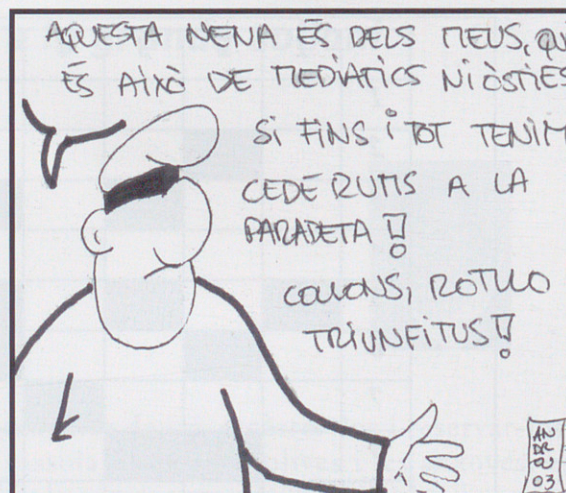 AQUESTA NENA ÉS DELS MEUS, QU
ÉS AIXÒ DE MEDIÀTICS NI ÒSTIES
SI FINS I TOT TENIM
CEDÉRUMS A LA
PARADETA!!
COLLONS, ROTLLO
TRIUNFITUS!!
AN
DR
EU
03